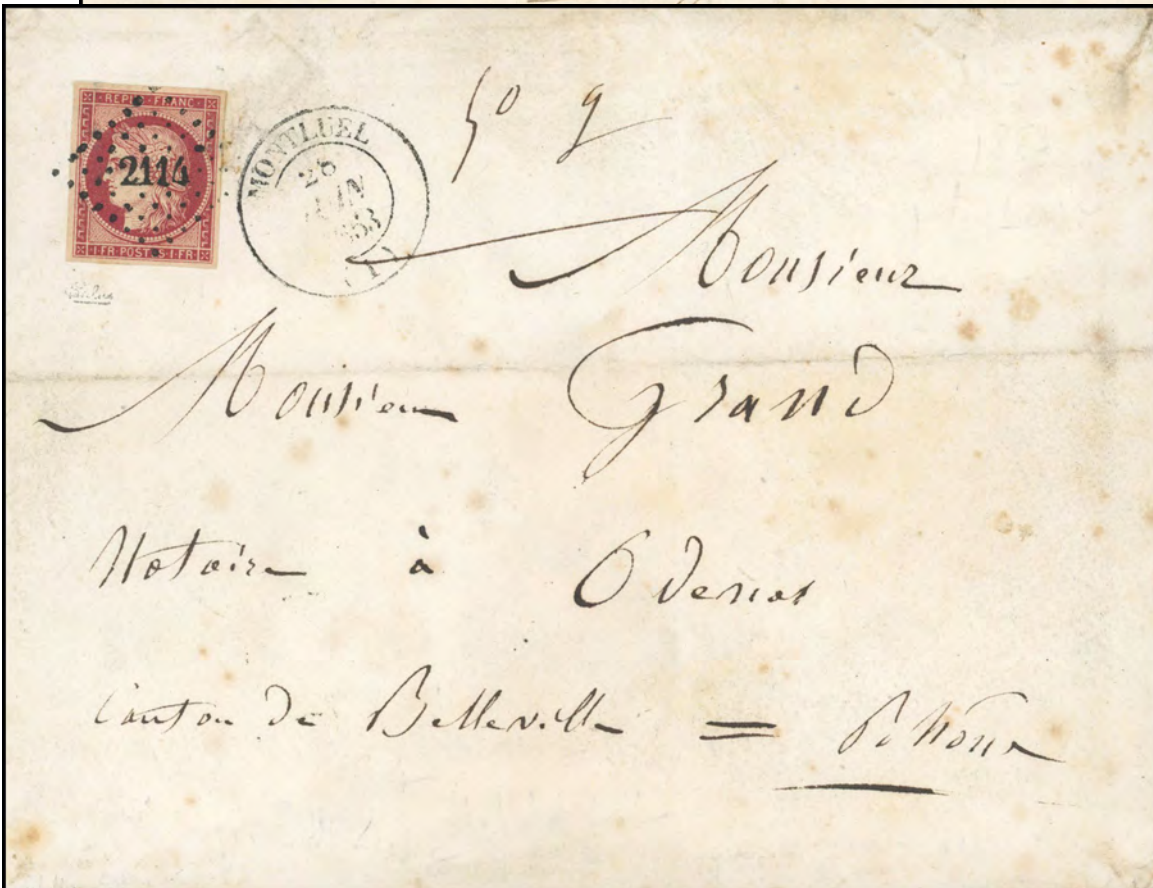 REPUB · FRANC
2114
1 FR POSTES 1 FR
MONTLUEL
28
JUIN
1853
(1)
50 g
Monsieur
Monsieur Grand
Notaire à Odenas
Canton de Belleville =